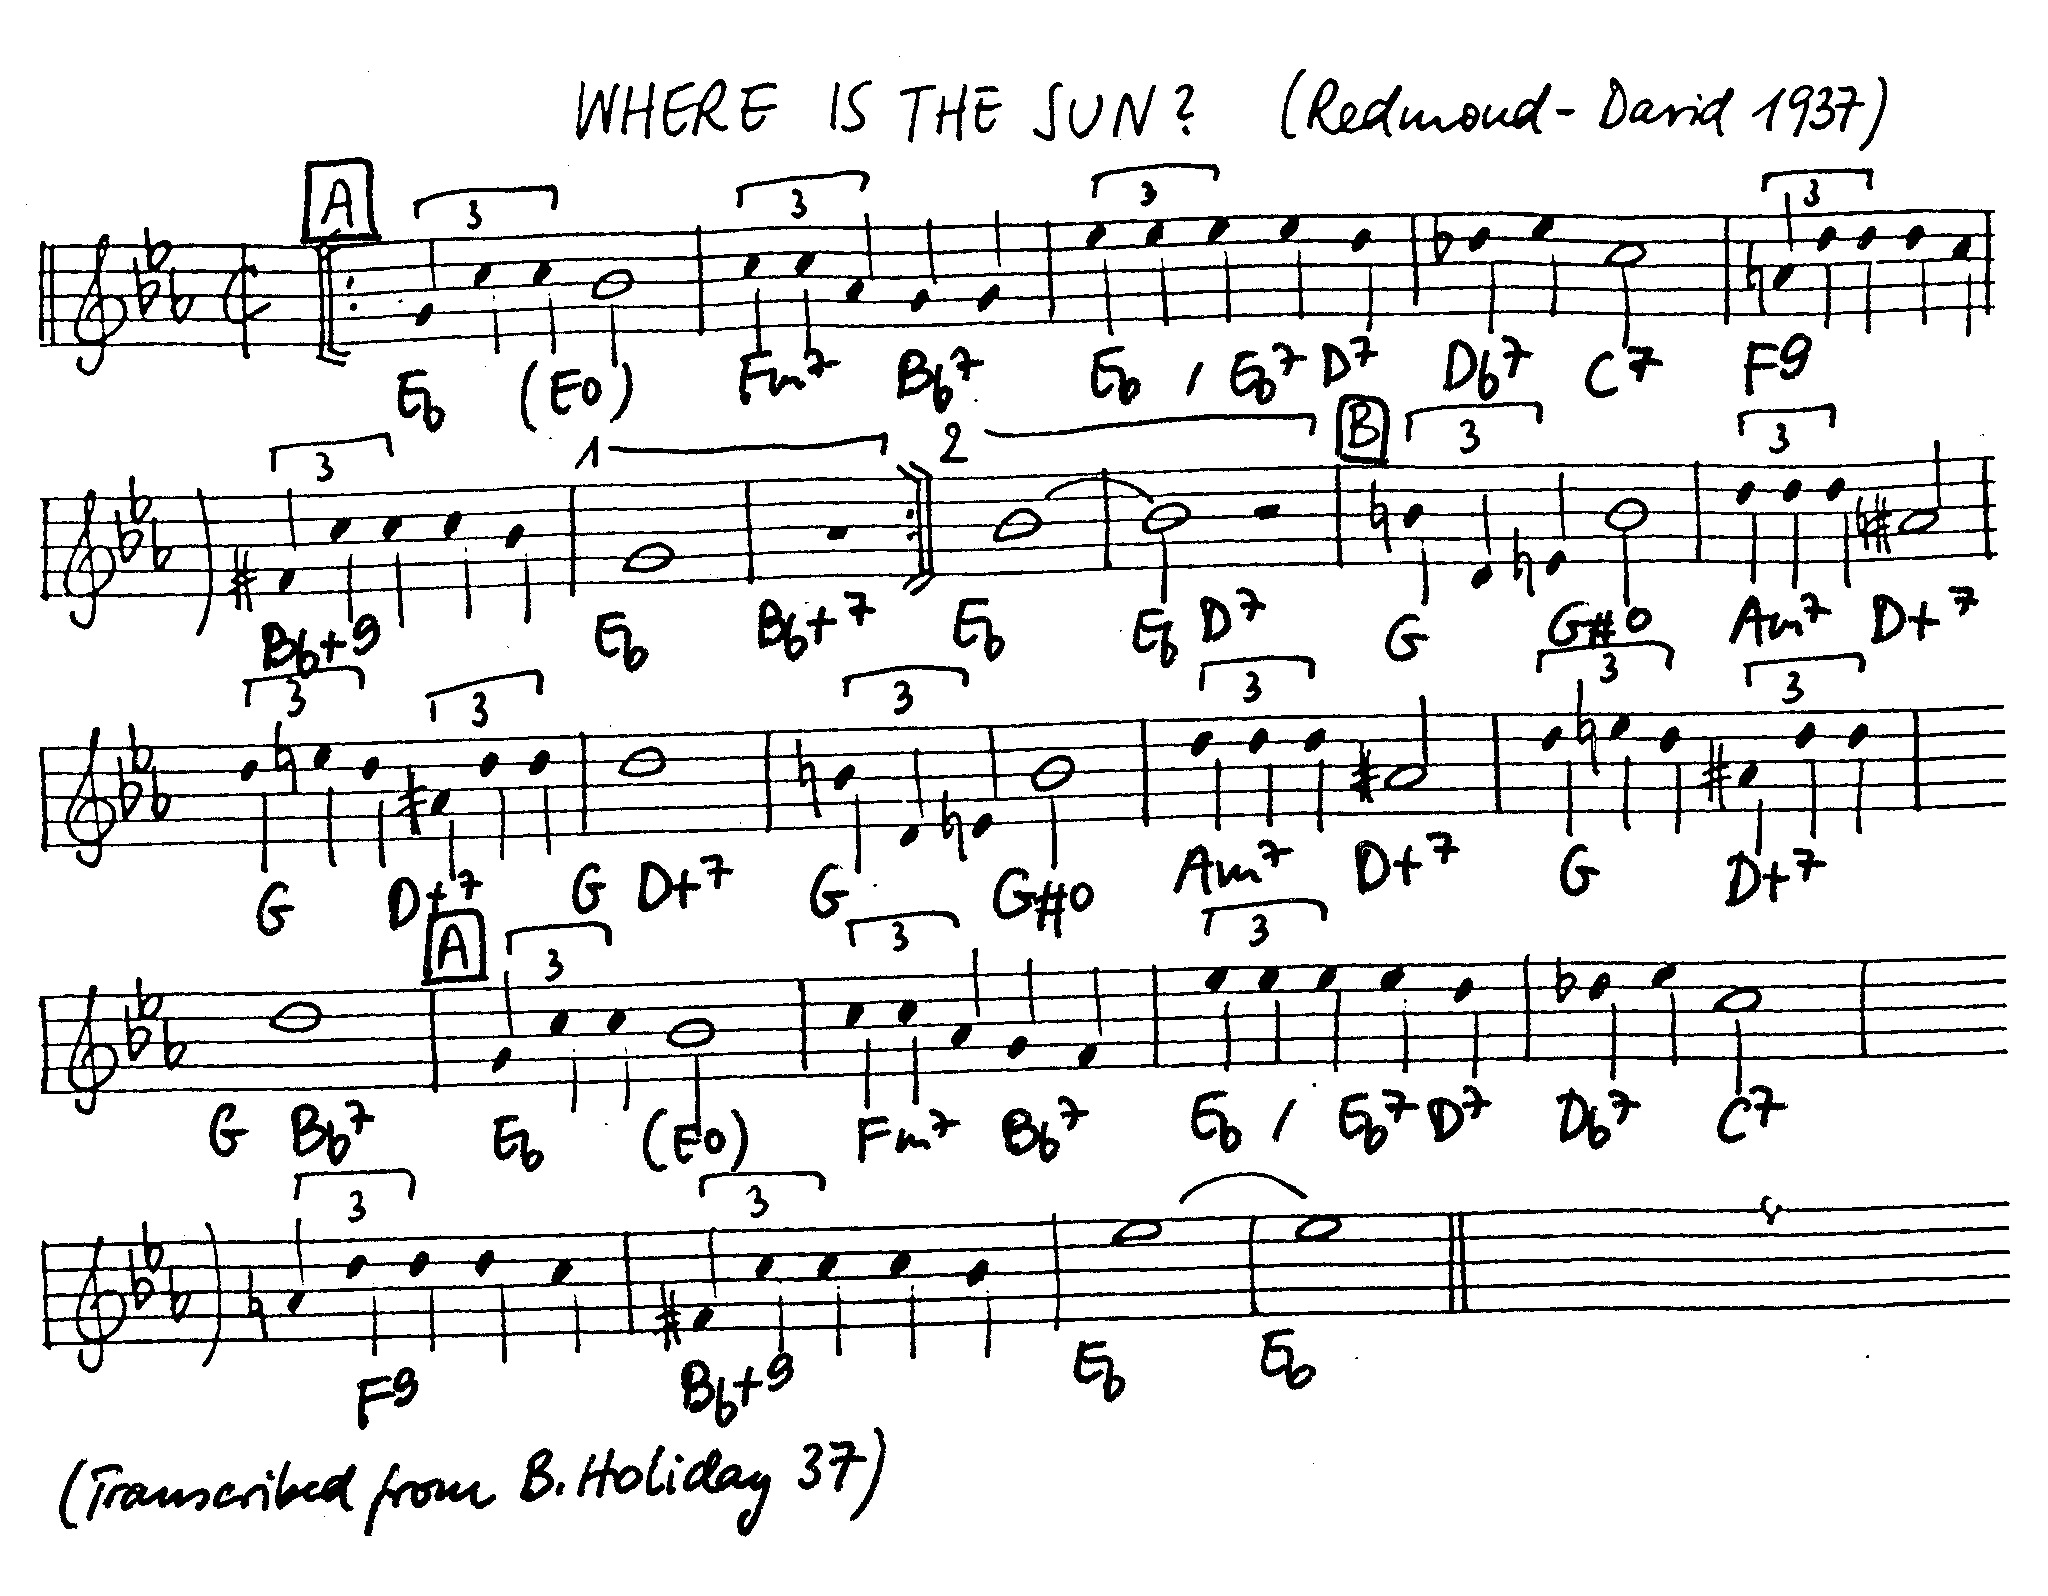 WHERE IS THE SUN? (Redmond-David 1937)
A 3 3 3 3
Eb (Eo) Fm7 Bb7 Eb / Eb7 D7 Db7 C7 F9
3 1 2 B 3 3
Bb+9 Eb Bb+7 Eb Eb D7 G G#o Am7 D+7
3 3 3 3 3 3
G D+7 G D+7 G G#o Am7 D+7 G D+7
A 3 3 3
G Bb7 Eb (Eo) Fm7 Bb7 Eb / Eb7 D7 Db7 C7
3 3
F9 Bb+9 Eb Eb
(Transcribed from B. Holiday 37)